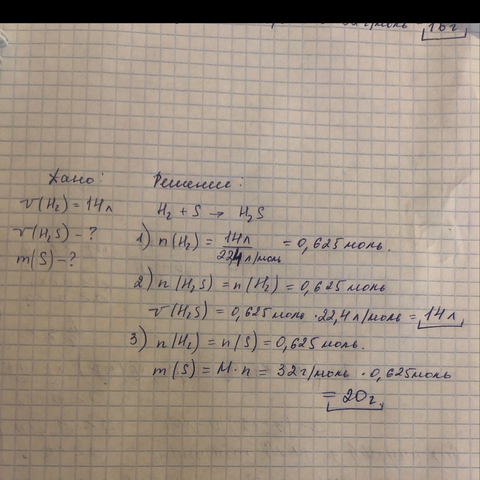 16 г
Дано:
v(H₂) = 14 л
v(H₂S) - ?
m(S) - ?
Решение:
H₂ + S → H₂S
1) n(H₂) = 14 л / 22,4 л/моль = 0,625 моль.
2) n(H₂S) = n(H₂) = 0,625 моль
v(H₂S) = 0,625 моль · 22,4 л/моль = 14 л,
3) n(H₂) = n(S) = 0,625 моль.
m(S) = M · n = 32 г/моль · 0,625 моль
= 20 г,